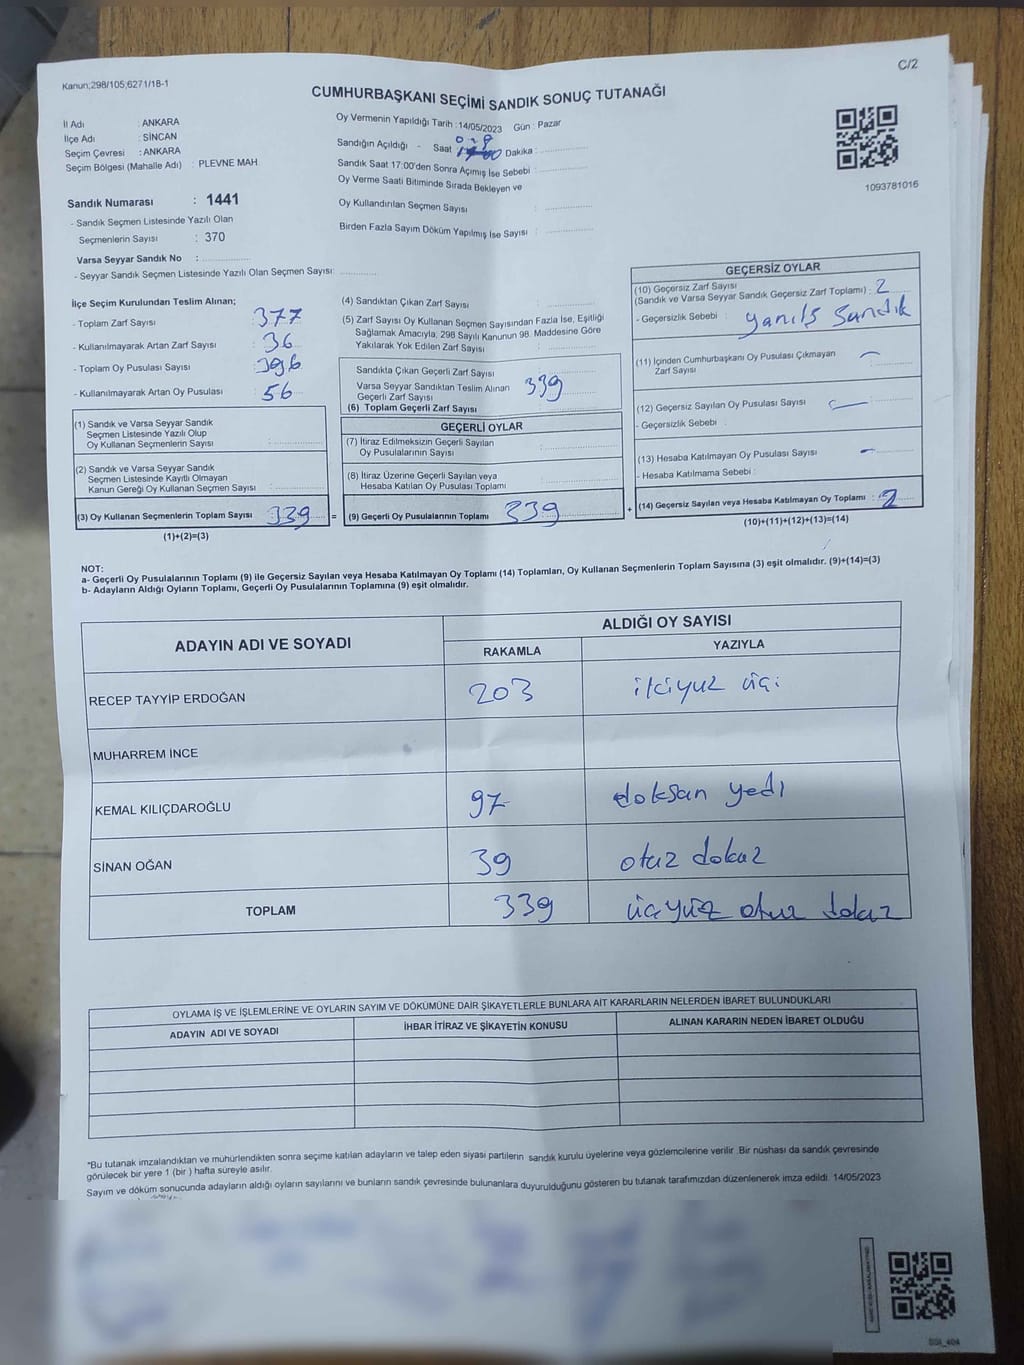 Kanun;298/105;6271/18-1
C/2
CUMHURBAŞKANI SEÇİMİ SANDIK SONUÇ TUTANAĞI
İl Adı : ANKARA
İlçe Adı : SİNCAN
Seçim Çevresi : ANKARA
Seçim Bölgesi (Mahalle Adı) : PLEVNE MAH
Sandık Numarası : 1441
- Sandık Seçmen Listesinde Yazılı Olan
Seçmenlerin Sayısı : 370
Varsa Seyyar Sandık No :
- Seyyar Sandık Seçmen Listesinde Yazılı Olan Seçmen Sayısı:
Oy Vermenin Yapıldığı Tarih :14/05/2023 Gün : Pazar
Sandığın Açıldığı - Saat Dakika :
Sandık Saat 17:00'den Sonra Açımış İse Sebebi :
Oy Verme Saati Bitiminde Sırada Bekleyen ve
Oy Kullandırılan Seçmen Sayısı :
Birden Fazla Sayım Döküm Yapılmış İse Sayısı :
1093781016
İlçe Seçim Kurulundan Teslim Alınan;
- Toplam Zarf Sayısı : 377
- Kullanılmayarak Artan Zarf Sayısı : 36
- Toplam Oy Pusulası Sayısı : 396
- Kullanılmayarak Artan Oy Pusulası : 56
(1) Sandık ve Varsa Seyyar Sandık
Seçmen Listesinde Yazılı Olup
Oy Kullanan Seçmenlerin Sayısı :
(2) Sandık ve Varsa Seyyar Sandık
Seçmen Listesinde Kayıtlı Olmayan
Kanun Gereği Oy Kullanan Seçmen Sayısı :
(3) Oy Kullanan Seçmenlerin Toplam Sayısı : 339 =
(1)+(2)=(3)
(4) Sandıktan Çıkan Zarf Sayısı :
(5) Zarf Sayısı Oy Kullanan Seçmen Sayısından Fazla İse, Eşitliği
Sağlamak Amacıyla, 298 Sayılı Kanunun 98. Maddesine Göre
Yakılarak Yok Edilen Zarf Sayısı :
Sandıkta Çıkan Geçerli Zarf Sayısı
Varsa Seyyar Sandıktan Teslim Alınan 339
Geçerli Zarf Sayısı
(6) Toplam Geçerli Zarf Sayısı :
GEÇERLİ OYLAR
(7) İtiraz Edilmeksizin Geçerli Sayılan
Oy Pusulalarının Sayısı :
(8) İtiraz Üzerine Geçerli Sayılan veya
Hesaba Katılan Oy Pusulası Toplamı :
(9) Geçerli Oy Pusulalarının Toplamı : 339 +
GEÇERSİZ OYLAR
(10) Geçersiz Zarf Sayısı
(Sandık ve Varsa Seyyar Sandık Geçersiz Zarf Toplamı) : 2
- Geçersizlik Sebebi : yanlış sandık
(11) İçinden Cumhurbaşkanı Oy Pusulası Çıkmayan
Zarf Sayısı :
(12) Geçersiz Sayılan Oy Pusulası Sayısı :
- Geçersizlik Sebebi :
(13) Hesaba Katılmayan Oy Pusulası Sayısı :
- Hesaba Katılmama Sebebi :
(14) Geçersiz Sayılan veya Hesaba Katılmayan Oy Toplamı : 2
(10)+(11)+(12)+(13)=(14)
NOT:
a- Geçerli Oy Pusulalarının Toplamı (9) ile Geçersiz Sayılan veya Hesaba Katılmayan Oy Toplamı (14) Toplamları, Oy Kullanan Seçmenlerin Toplam Sayısına (3) eşit olmalıdır. (9)+(14)=(3)
b- Adayların Aldığı Oyların Toplamı, Geçerli Oy Pusulalarının Toplamına (9) eşit olmalıdır.
ADAYIN ADI VE SOYADI
ALDIĞI OY SAYISI
RAKAMLA YAZIYLA
RECEP TAYYİP ERDOĞAN 203 ikiyuz üçi
MUHARREM İNCE
KEMAL KILIÇDAROĞLU 97 doksan yedi
SİNAN OĞAN 39 otuz dokuz
TOPLAM 339 üçyüz otuz dokuz
OYLAMA İŞ VE İŞLEMLERİNE VE OYLARIN SAYIM VE DÖKÜMÜNE DAİR ŞİKAYETLERLE BUNLARA AİT KARARLARIN NELERDEN İBARET BULUNDUKLARI
ADAYIN ADI VE SOYADI İHBAR İTİRAZ VE ŞİKAYETİN KONUSU ALINAN KARARIN NEDEN İBARET OLDUĞU
*Bu tutanak imzalandıktan ve mühürlendikten sonra seçime katılan adayların ve talep eden siyasi partilerin sandık kurulu üyelerine veya gözlemcilerine verilir. Bir nüshası da sandık çevresinde
görülecek bir yere 1 (bir ) hafta süreyle asılır.
Sayım ve döküm sonucunda adayların aldığı oyların sayılarını ve bunların sandık çevresinde bulunanlara duyurulduğunu gösteren bu tutanak tarafımızdan düzenlenerek imza edildi. 14/05/2023